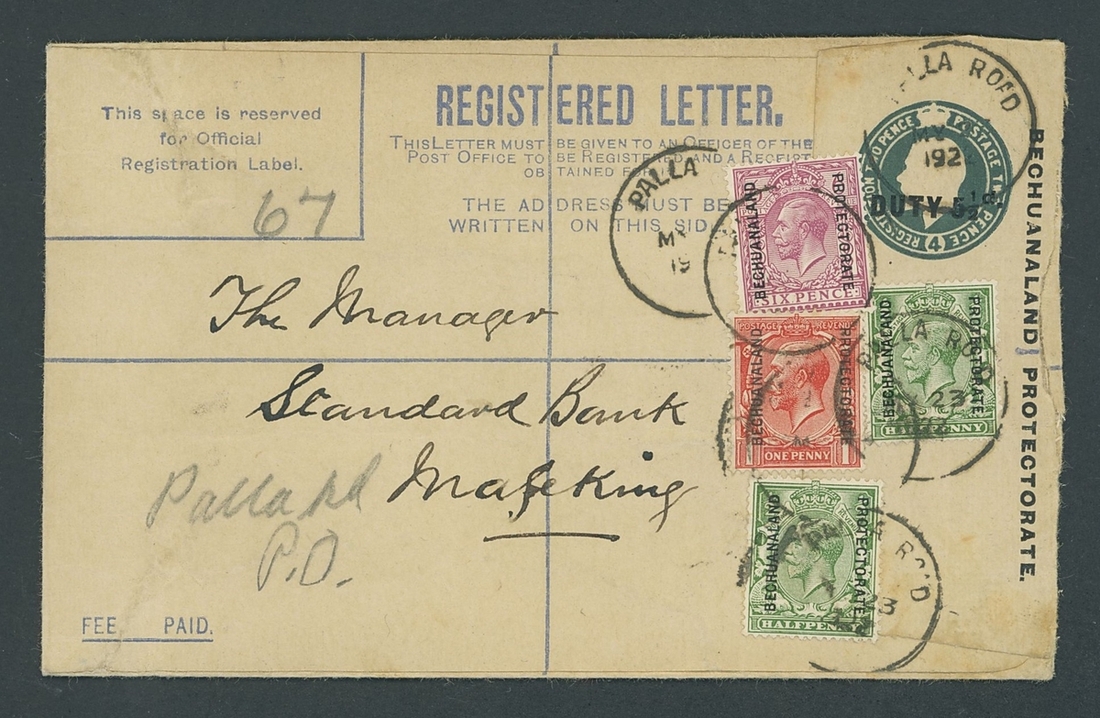 This space is reserved
for Official
Registration Label.
67
REGISTERED LETTER.
THIS LETTER MUST BE GIVEN TO AN OFFICER OF THE
POST OFFICE TO BE REGISTERED, AND A RECEIPT
OBTAINED FOR
THE ADDRESS MUST BE
WRITTEN ON THIS SID
PALLA ROAD
MY
192
POSTAGE
PENCE
REGIST
4
DUTY 5½d
BECHUANALAND PROTECTORATE.
PALLA
MY
19
BECHUANALAND
PROTECTORATE
SIX PENCE
The Manager
POSTAGE REVENUE
BECHUANALAND
PROTECTORATE
1 ONE PENNY 1
BECHUANALAND
PROTECTORATE
PALLA ROAD
23
HALFPENNY
Standard Bank
Mafeking
Palla Rd
P.O.
BECHUANALAND
PROTECTORATE
ROAD
23
HALFPENNY
FEE PAID.